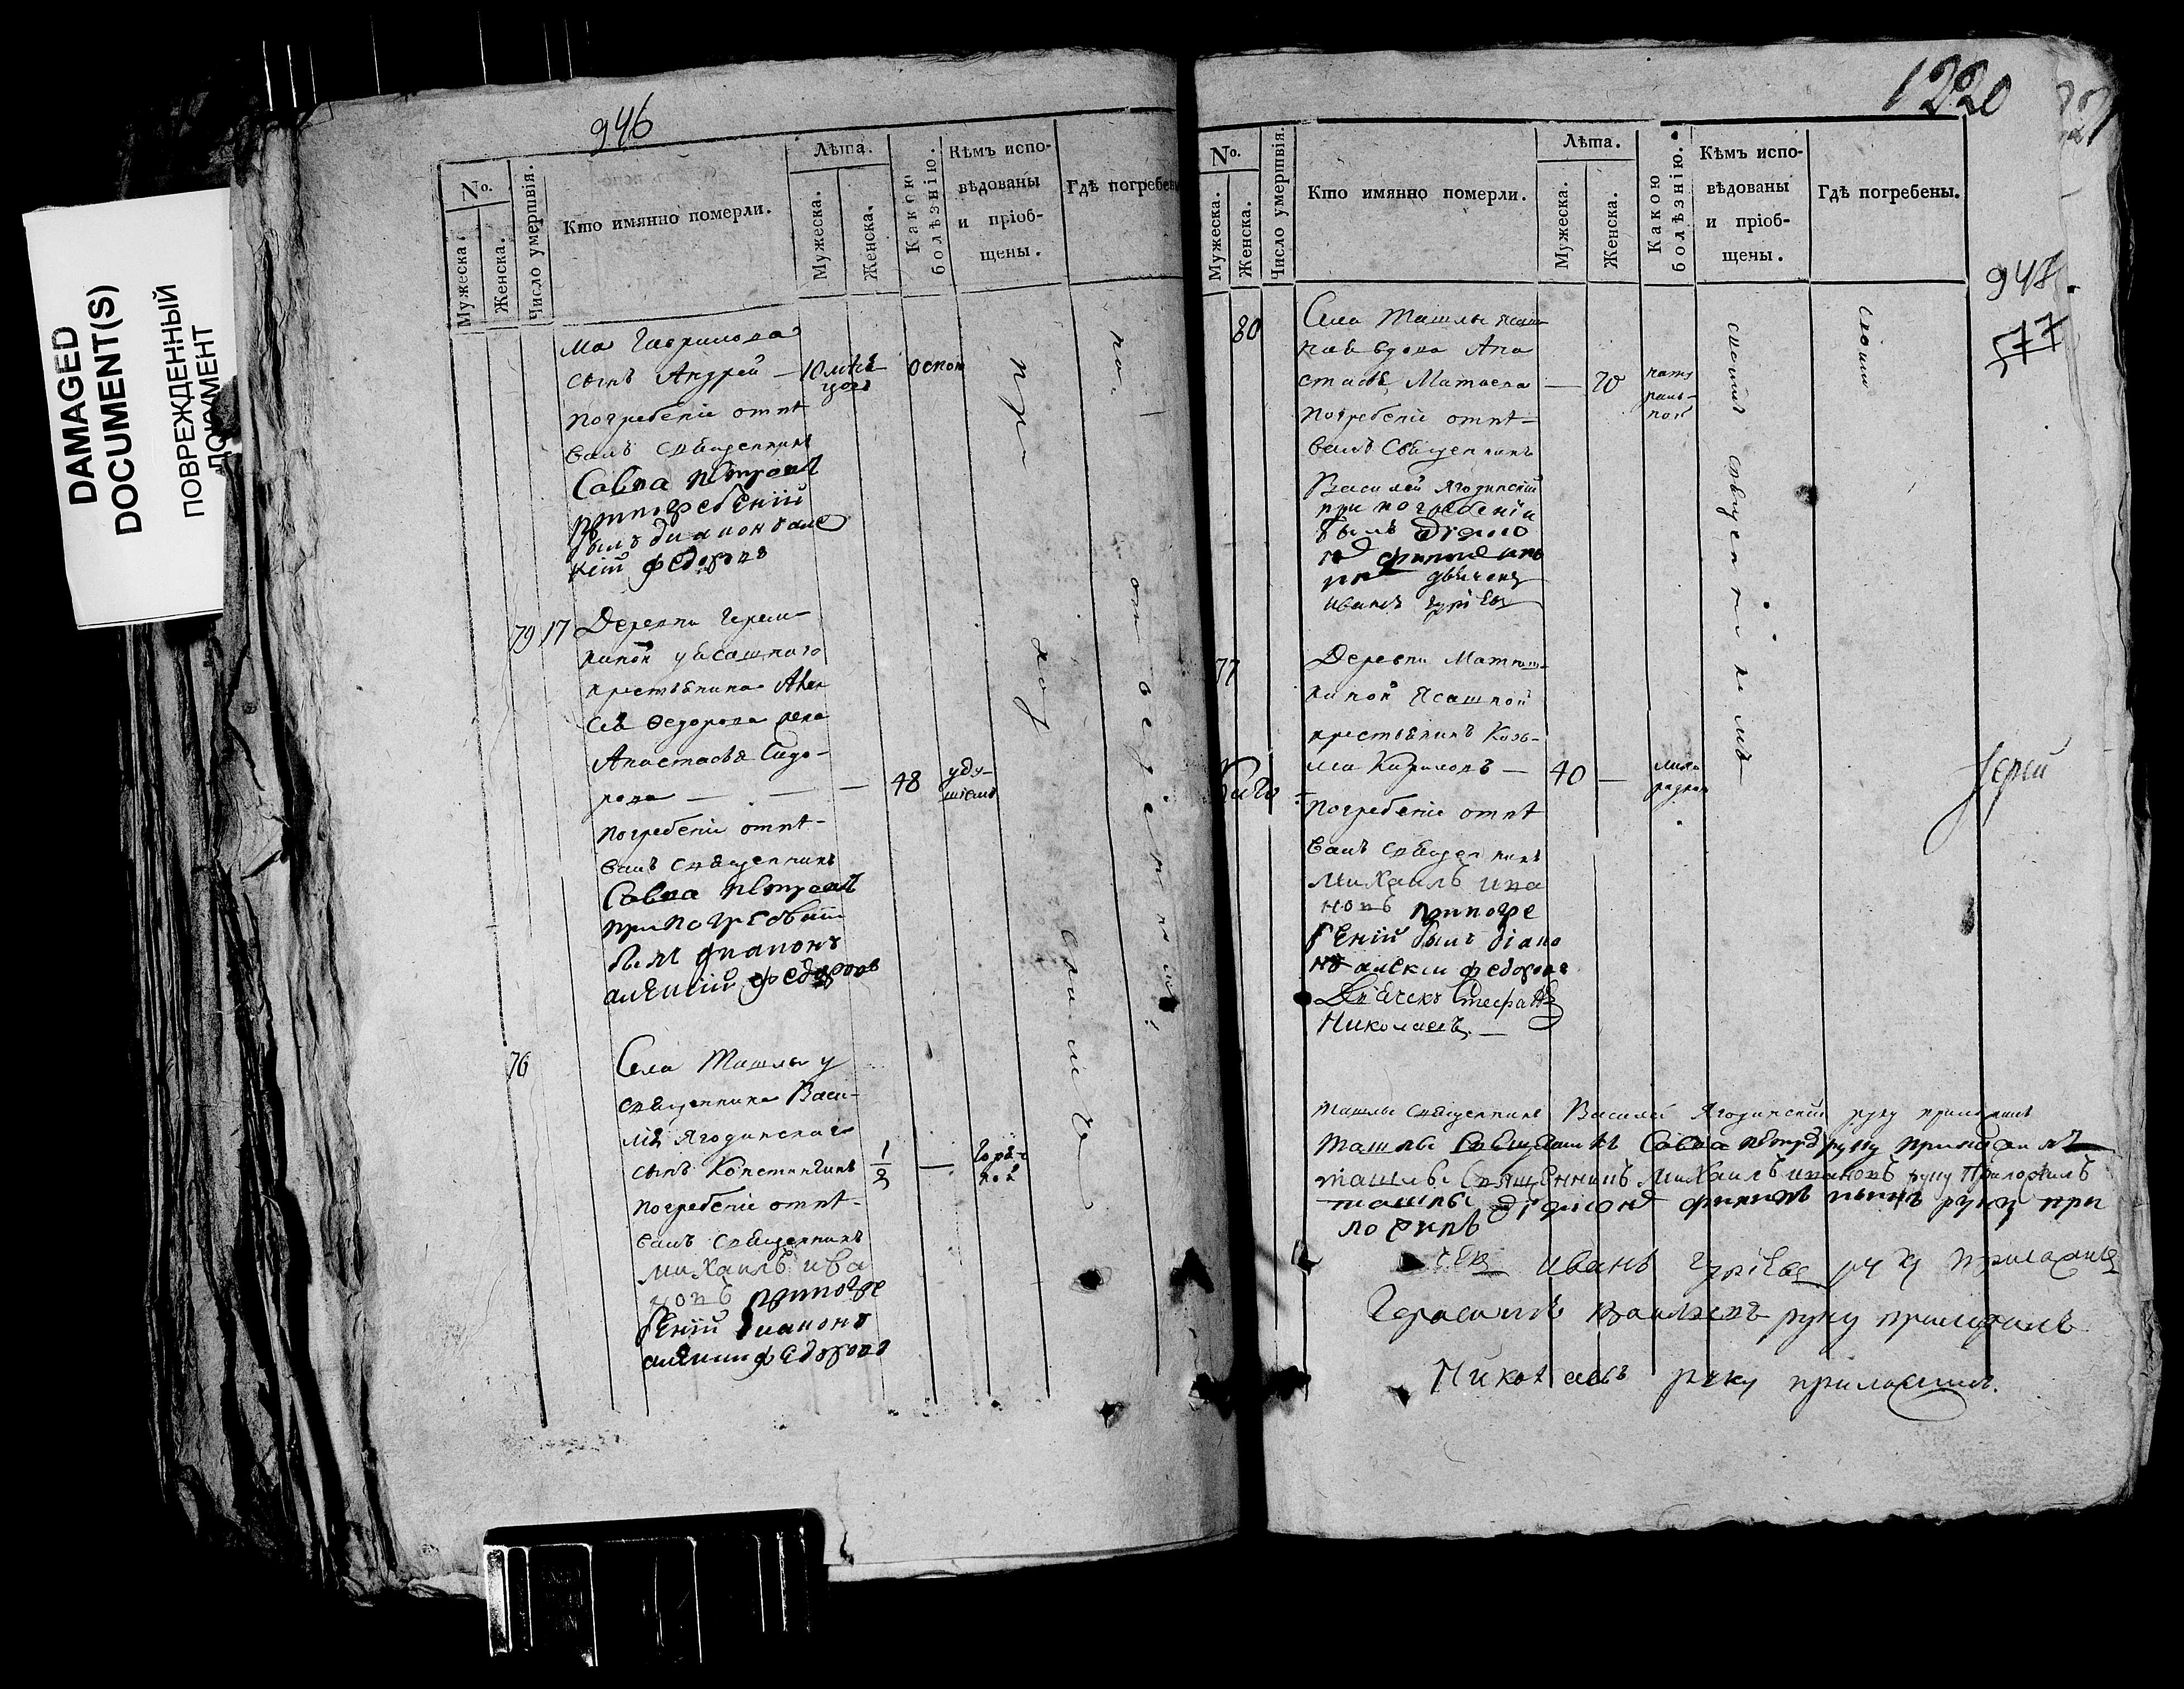 DAMAGED
DOCUMENT(S)
ПОВРЕЖДЕННЫЙ
ДОКУМЕНТ
946
No.
Мужеска.
Женска.
Число умертвія.
Кто имянно померли.
Лѣта.
Мужеска.
Женска.
Какою болѣзнію.
Кѣмъ испо-
вѣдованы
и пріоб-
щены.
Гдѣ погребены
ма Гаврилова
сынъ Андрей — 10 мѣся-
цовъ
оспою
погребеніе отпѣ
валъ священникъ
Савва Петровъ
при погребеніи
былъ диаконъ але
ѯѣй федоровъ
79 17 Деревни
киной
крестьянина Алек
сѣя Ѳедорова жена
Анастасья Сидо-
рова — — — 48
уду-
шьемъ
погребеніе отпѣ-
валъ священникъ
Савва Петровъ
при погребении
былъ диаконъ
алеѯій федоровъ
76 Села Ташлы у
священника Васи-
лія Ягодинскаго
сынъ Константинъ 1/2 —
погребеніе отпѣ-
валъ священникъ
Михаилъ ива
новъ при погре
беніи диаконъ
федоровъ
1220
No.
Мужеска.
Женска.
Число умертвія.
Кто имянно померли.
Лѣта.
Мужеска.
Женска.
Какою болѣзнію.
Кѣмъ испо-
вѣдованы
и пріоб-
щены.
Гдѣ погребены.
948
577
80 Села Ташлы ясаш
ная вдова Ана
стасья Матвева — 70
нату
раль-
ной
погребеніе отпѣ-
валъ Священникъ
Василей Ягодинскій
при погребеніи
былъ диако
нъ
дьячекъ
иванъ гуріевъ
77 Деревни
киной Ясашной
крестьянинъ Козь-
ма Кириловъ — 40 —
лихо
радкой
погребеніе отпѣ
валъ священникъ
Михаилъ ива
новъ при погре
беніи былъ діако
нъ алекѣй федоровъ
Дьячекъ Стефанъ
Николаевъ. —
Іерей
Ташлы священникъ Василей Ягодинскій руку приложилъ
ташлы священникъ Савва петровъ руку приложилъ
ташлы Священникъ Михаилъ ивановъ руку Приложилъ
ташлы діаконъ руку при
ложилъ
иванъ гуріевъ руку приложилъ
Герасимъ Васильевъ руку приложилъ
Николаевъ руку приложилъ.